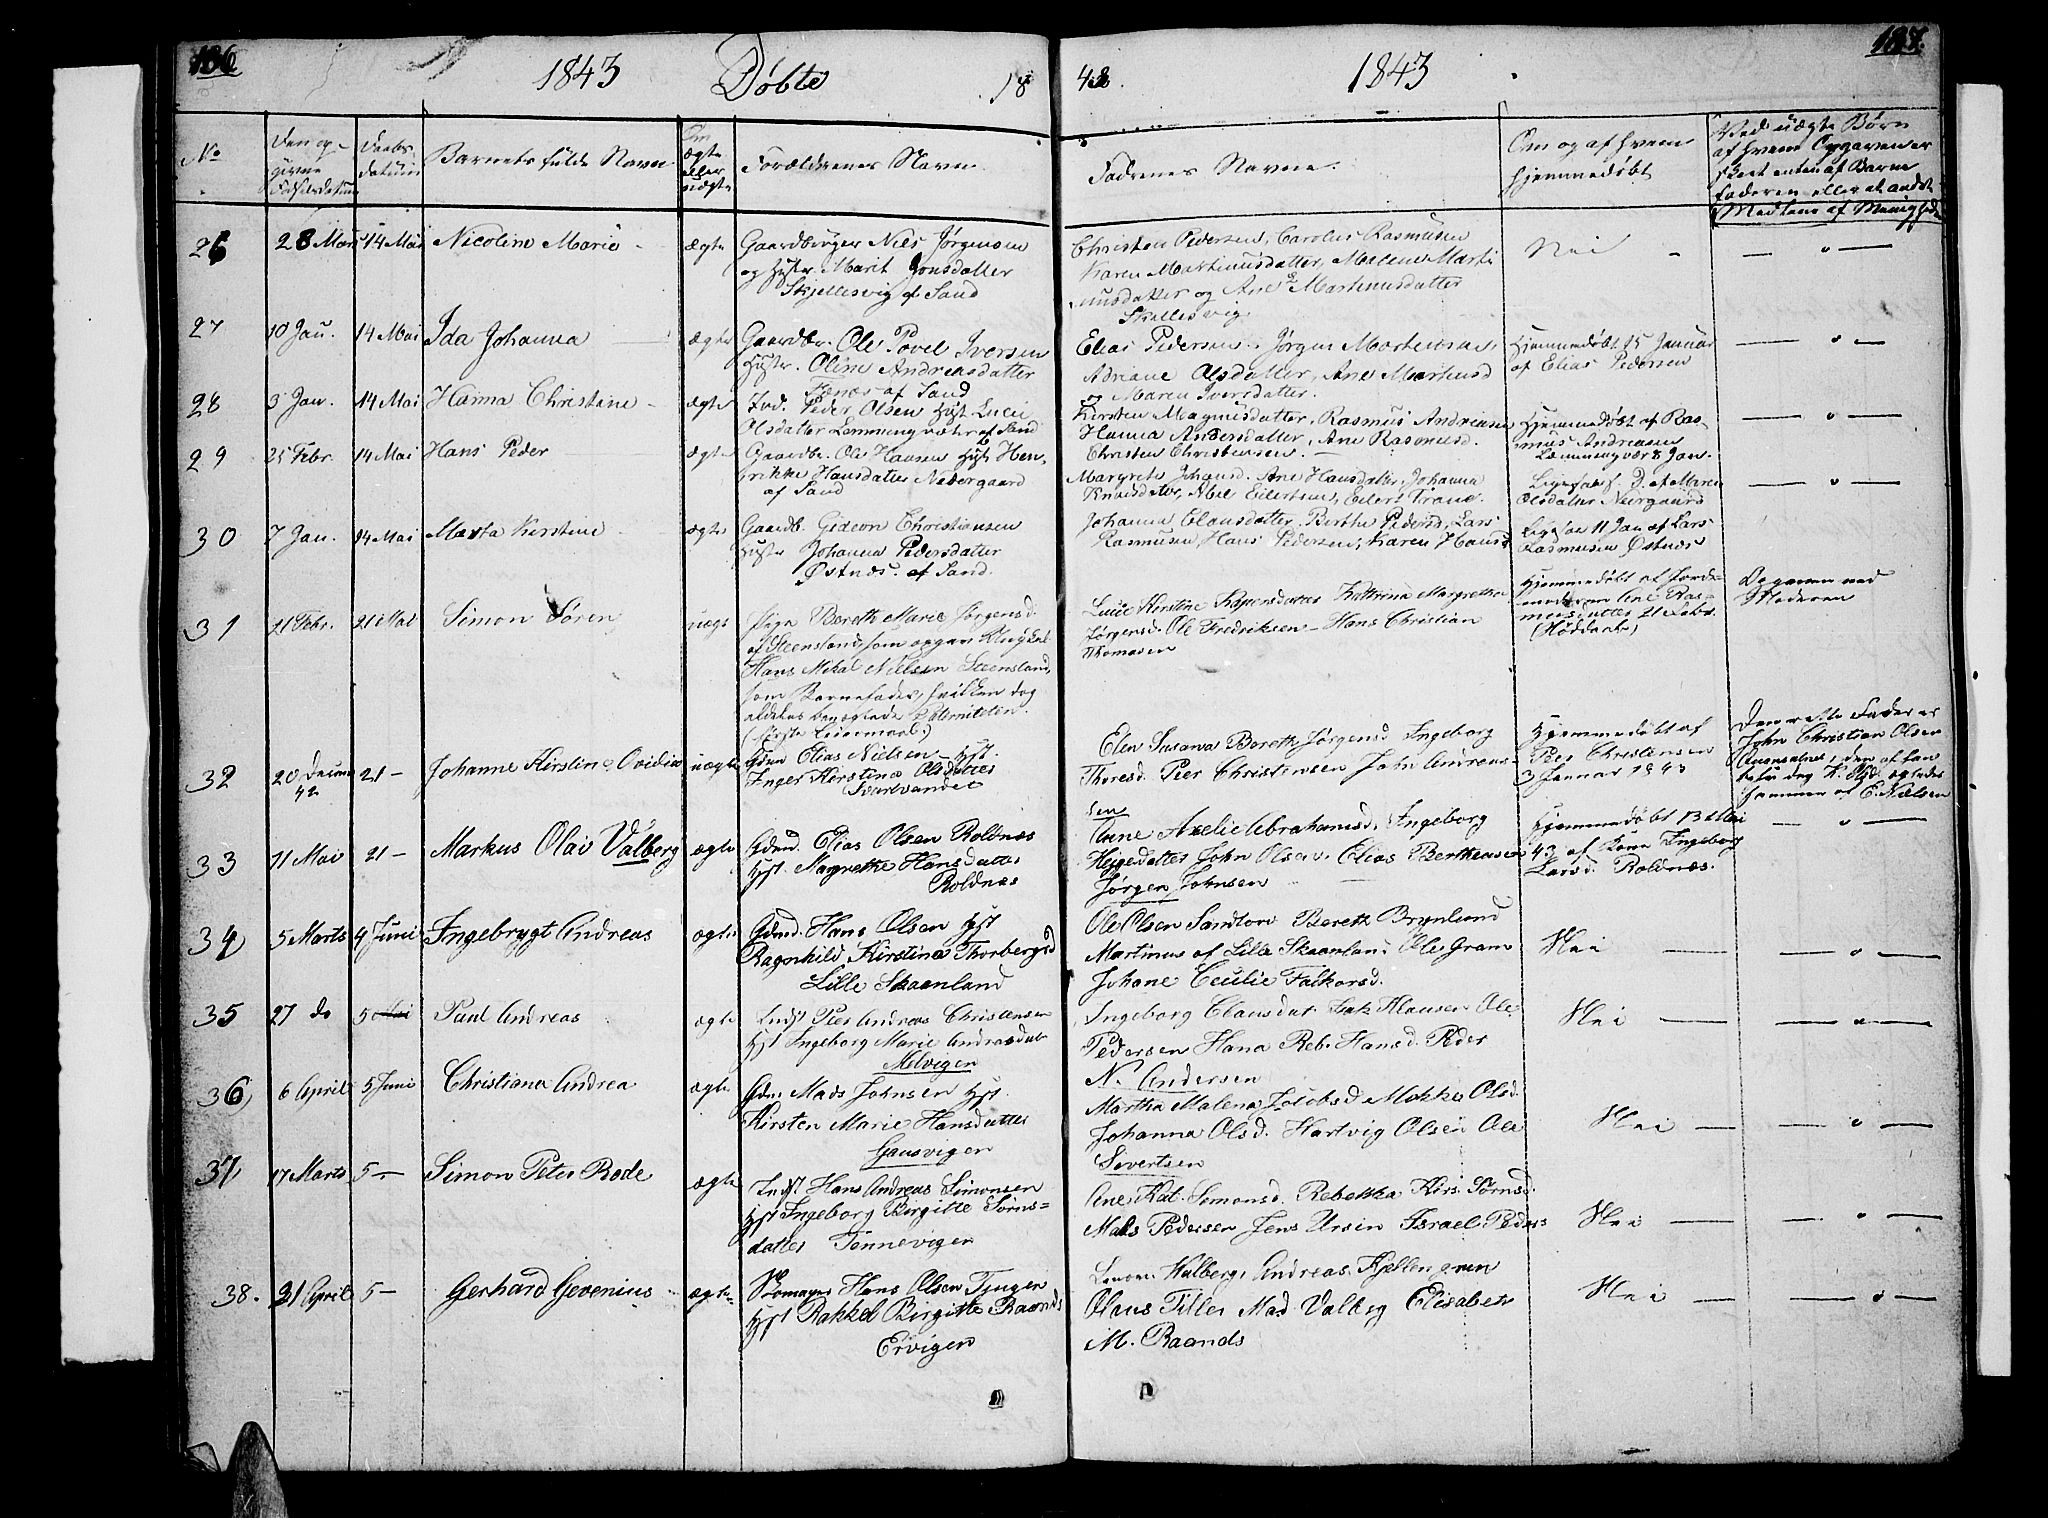 186
1843 Döbte 18
43. 1843
187.
No
Den op-
givne
Fødselsdatum
Daabs-
datum
Barnets fulde Navn
Om
ægte
eller
uægte
Forældrenes Navne
Fadrenes Navne.
Om og af hvem
hjemmedøbt
Ved uægte Børn
af hvem Opgaven er
skeet enten af Barne
faderen eller et andet
Medlem af Menighed
26 28 Mars 14 Mai Nicoline Marie ægte
Gaardbruger Niels Jørgensen
og Hustr. Marit Jonsdatter
Skjellesvig af Sand
Christen Pedersen, Carolus Rasmusen
Karen Martinusdatter, Malene Marti
nusdatter og Ane Martinusdatter
Skjellesvig.
Nei
27 10 Jan. 14 Mai Ida Johanna ægte
Gaardbr. Ole Povel Iversen
Hustr. Oline Andreasdatter
af Sand
Elias Pedersen, Jørgen Mortensen,
Adriane Olsdatter, Ane Martinusd
og Maren Iversdatter.
Hjemmedøbt 15 Januar
af Elias Pedersen
28 3 Jan. 14 Mai Hanna Christine ægte
Ind. Peder Olsen Hust Lucie
Olsdatter Lemmingvær af Sand
Kirsten Magnusdatter, Rasmus Andreasen
Hanna Andersdatter, Ane Rasmusd.
Christen Christensen.
Hjemmedøbt af Ras-
mus Andreasen
Lemmingvær 8 Jan.
29 25 Febr. 14 Mai Hans Peder ægte
Gaardbr. Ole Hansen Hust Hen-
rikke Hansdatter Nedergaard
af Sand
Margrete Johansd. Ane Hansdatter, Johanna
Knudsdatter, Abel Eilertsen, Eilert Krane.
af Maren
Olsdatter
30 7 Jan. 14 Mai Marta Kerstine ægte
Gaardb. Gideon Christiansen
Hustr Johanna Pedersdatter
Østnæs af Sand.
Johanna Clausdatter, Berthe Pedersd, Lars
Rasmusen, Hans Pedersen, Karen Hansd
11 Jan af Lars
Rasmusen Østnæs
31 21 Febr. 21 Mai Simon Søren uægt
Pige Bereth Marie Jørgensd.
af Steensland, som opgav Ungkal
Hans Mikal Nielsen Steensland,
som Barnefader, hvilken dog
aldeles benægtede Paterniteten.
(første Leiermaal.)
Lucie Kirstine Kaspersdatter Kattrina Margrethe
Jørgensd. Ole Fredriksen - Hans Christian
Thomasen
Hjemmedøbt af Jorde-
moderen Ane Ras-
musdatter 21 Febr.
Opgaven ved
Moderen
32 20 Decmb 42 21 - Johanne Kirstine Ovidia uægte
Gdm Elias Nielsen Hst.
Inger Kirstina Olsdatter
Svartvandet
Elen Susana Bereth Jørgensd Ingeborg
Thoresd. Peer Christensen John Andreas-
sen
Hjemmedøbt af
Peer Christensen
3 Januar 1843
Den rette Fader er
John Christian Olsen
E. Nielsen
33 11 Mai 21 - Markus Olai Valberg ægte
Gdmd. Elias Olsen Roldnæs
Hst. Margrethe Hansdatter
Roldnæs
Anne Axelie Abrahamsd. Ingeborg
Heggedatter John Olsen. Elias Berthensen
Jørgen Johnsen
Hjemmedøbt 13 Mai
43 af Kone Ingeborg
Larsd. Roldnæs.
34 5 Marts 4 Juni Ingebrygt Andreas ægte
Gdmd. Hans Olsen Hst
Ragnhild Kirstina Thorbergsd
Lille Skaanland
Ole Olsen Sandtorv Bereth Brynlund
Martinus af Lille Skaanland Ole Gram
Johane Cecilie Falkorsd.
Nei
35 27 do 5 Mai Paul Andreas ægte
Indst Peer Andreas Christensen
Hst Ingeborg Marie Andreasdat
Melvigen
Ingeborg Clausdat Klausen Ole
Pedersen Hana Reb. Hansd. Peder
N. Andersen
Nei
36 6 April 5 Juni Christiana Andrea ægte
Gdm. Mads Johnsen Hst.
Kirsten Marie Hansdatter
Gausvigen
Martha Malena Jacobsd Mekke Olsd.
Johanna Olsd. Hartvig Olsen Ole
Sivertsen
Nei
37 17 Marts 5 - Simon Peter Bode ægte
Indst Hans Andreas Simonsen
Hst Ingeborg Birgitte Sørns-
datter Tennevigen
Ane Kat. Simonsd. Rebekka Kirs. Sørnsd.
Mads Pedersen Jens Ursin Israel Peders
Nei
38. 21 April 5 - Gerhard Gevenius ægte
Skomager Hans Olsen Tyugen
Hst Rakkel Birgitte Raands
Ervigen
Valberg, Andreas Kjellengren
Olaus Tiller Mad. Valberg Elisabeth
M. Raands
Nei